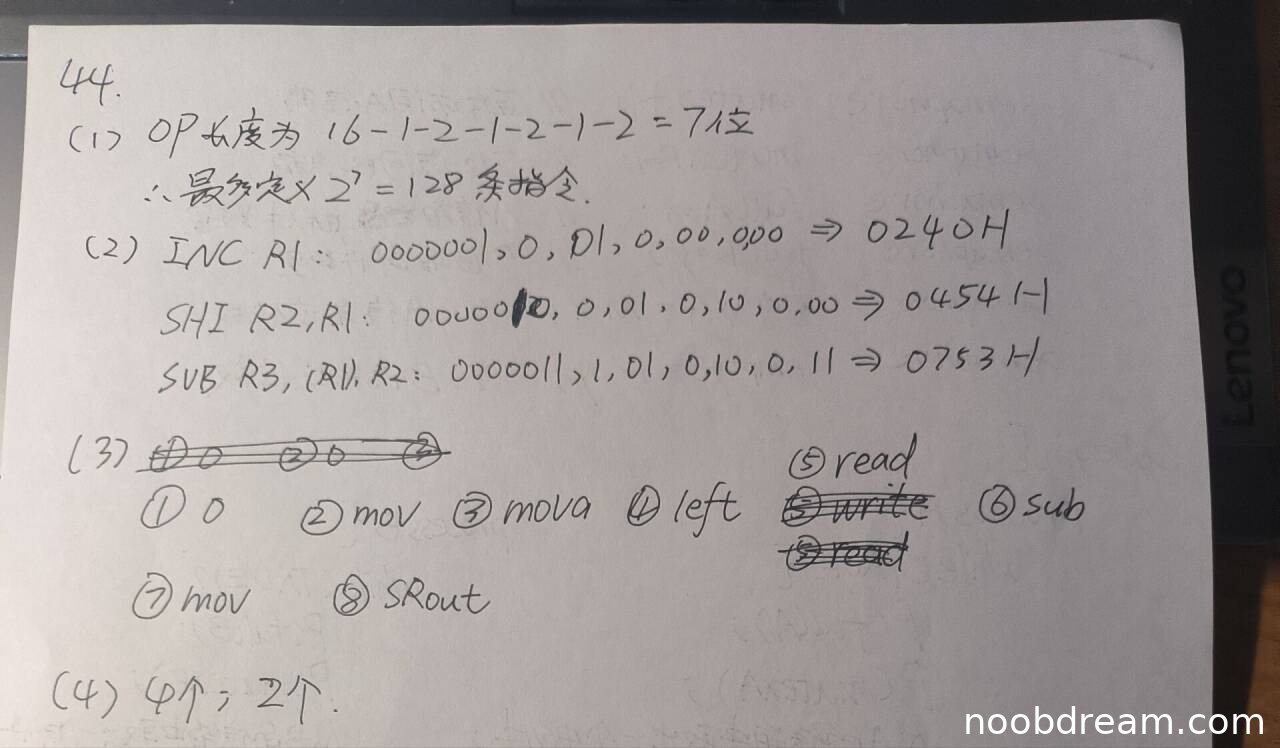 44.
(1) OP长度为 16-1-2-1-2-1-2=7位
∴最多定义 2⁷=128 条指令.
(2) INC R1: 0000001,0,01,0,00,0,00 ⇒ 0240H
SHI R2,R1: 0000010,0,01,0,10,0,00 ⇒ 0454H
SUB R3,(R1),R2: 0000011,1,01,0,10,0,11 ⇒ 0753H
(3) ① 0 ② 0 ③
⑤ read
① 0 ② mov ③ mova ④ left ⑤ write ⑥ sub
⑤ read
⑦ mov ⑧ SRout
(4) 4个; 2个.
Lenovo
noobdream.com